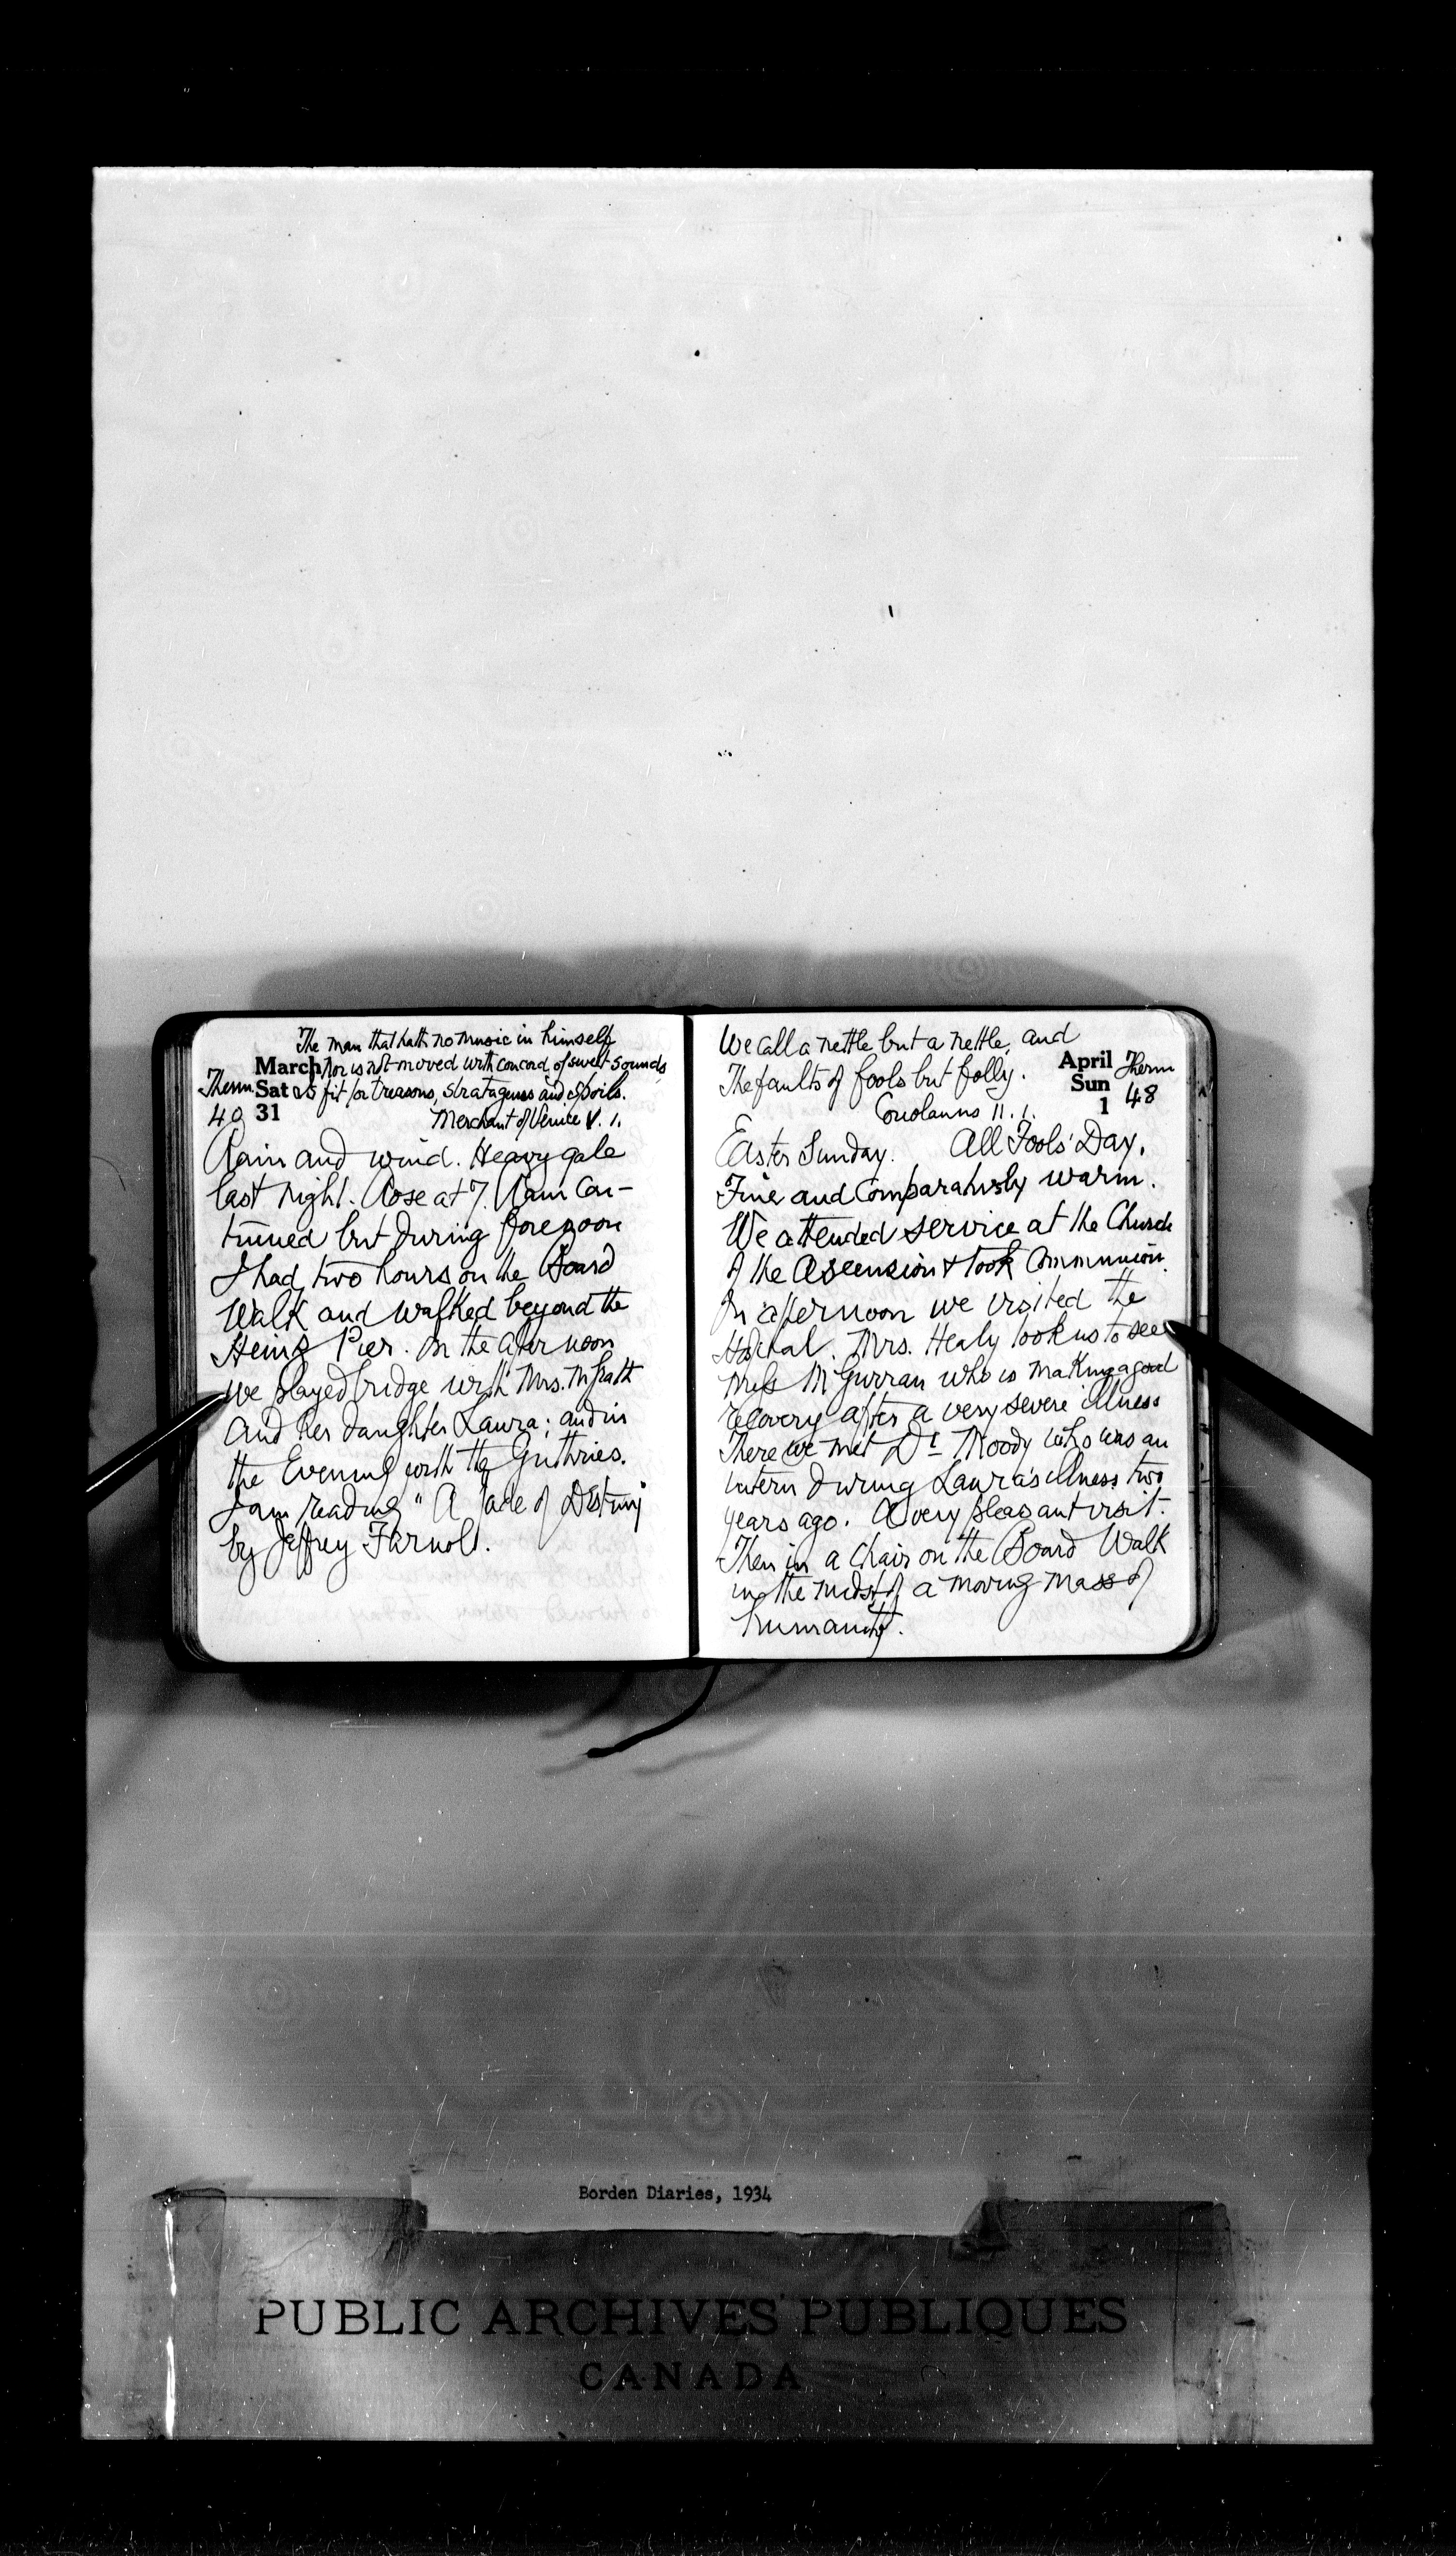 The man that hath no music in himself
March Nor is not moved with concord of sweet sounds
Therm. Sat Is fit for treasons, stratagems and spoils.
40 31 Merchant of Venice V. 1.
Rain and wind. Heavy gale
last night. Rose at 7. Rain con-
tinued but during forenoon
I had two hours on the Board
Walk and walked beyond the
Heinz Pier. In the afternoon
we played bridge with Mrs.
and her daughter Laura; and in
the Evening with the Guthries.
I am reading "A Jade of Destiny
by Jeffrey Farnol.
We call a nettle but a nettle, and
The faults of fools but folly. April Therm
Coriolanus II. 1. Sun 48
1
Easter Sunday. All Fools' Day.
Fine and comparatively warm.
We attended service at the Church
of the Ascension & took Communion.
In afternoon we visited the
Hospital. Mrs. Healy took us to see
Miss McGurran who is making a good
recovery after a very severe illness
There we met Dr Moody who was an
intern during Laura's illness two
years ago. A very pleasant visit.
Then in a chair on the Board Walk
in the midst of a moving mass of
humanity.
Borden Diaries, 1934
PUBLIC ARCHIVES PUBLIQUES
CANADA